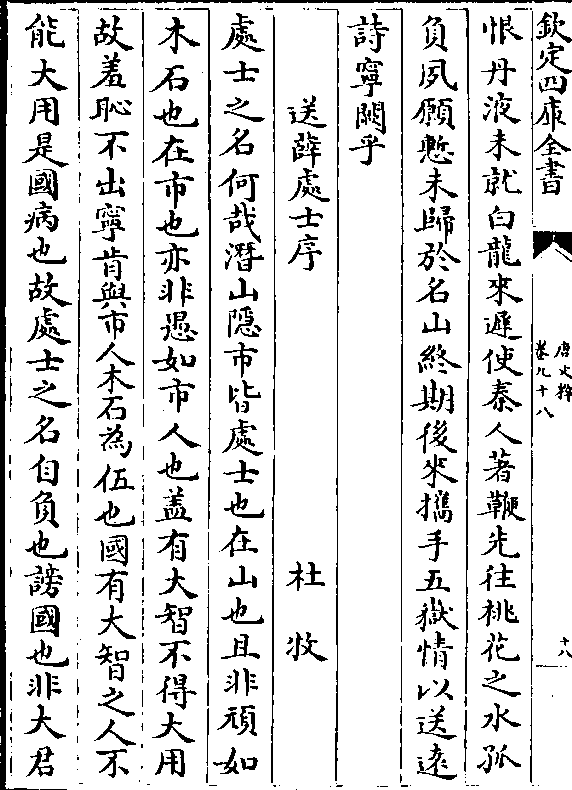 欽定四庫全書
唐文粹
卷九十八
十八
恨丹液未就白龍來遲使秦人著鞭先往桃花之水孤
負夙願慙未歸於名山終期後來攜手五嶽情以送遠
詩寧闕乎
送薛處士序 杜牧
處士之名何哉潛山隠市皆處士也在山也且非頑如
木石也在市也亦非愚如市人也蓋有大智不得大用
故羞恥不出寧肯與市人木石為伍也國有大智之人不
能大用是國病也故處士之名自負也謗國也非大君